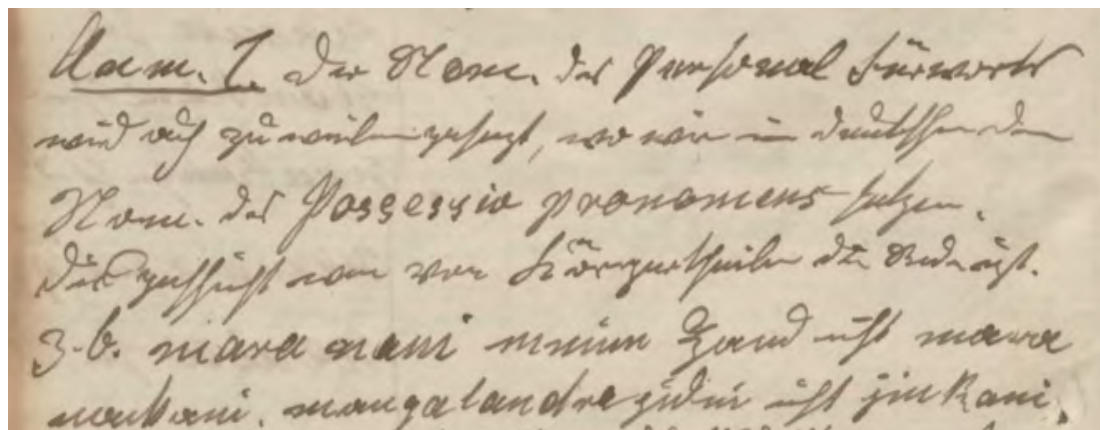 Anm. 1. Der Nom. des Personal Fürworts
wird auch zuweilen gesezt, wo wir im deutschen den
Nom. des Possessiv pronomens setzen.
Dies geschieht wenn von Körpertheilen die Rede ist.
z. b. mara nani meine Hand nicht mara
nankani. mangatandra nicht jinkani.